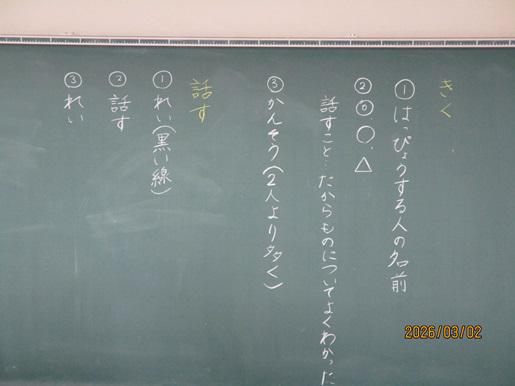 きく
①はっぴょうする人の名前
②◎○△
話すこと…たからものについてよくわかった
③かんそう(2人より多く)
話す
①れい(黒い線)
②話す
③れい
2026/03/02